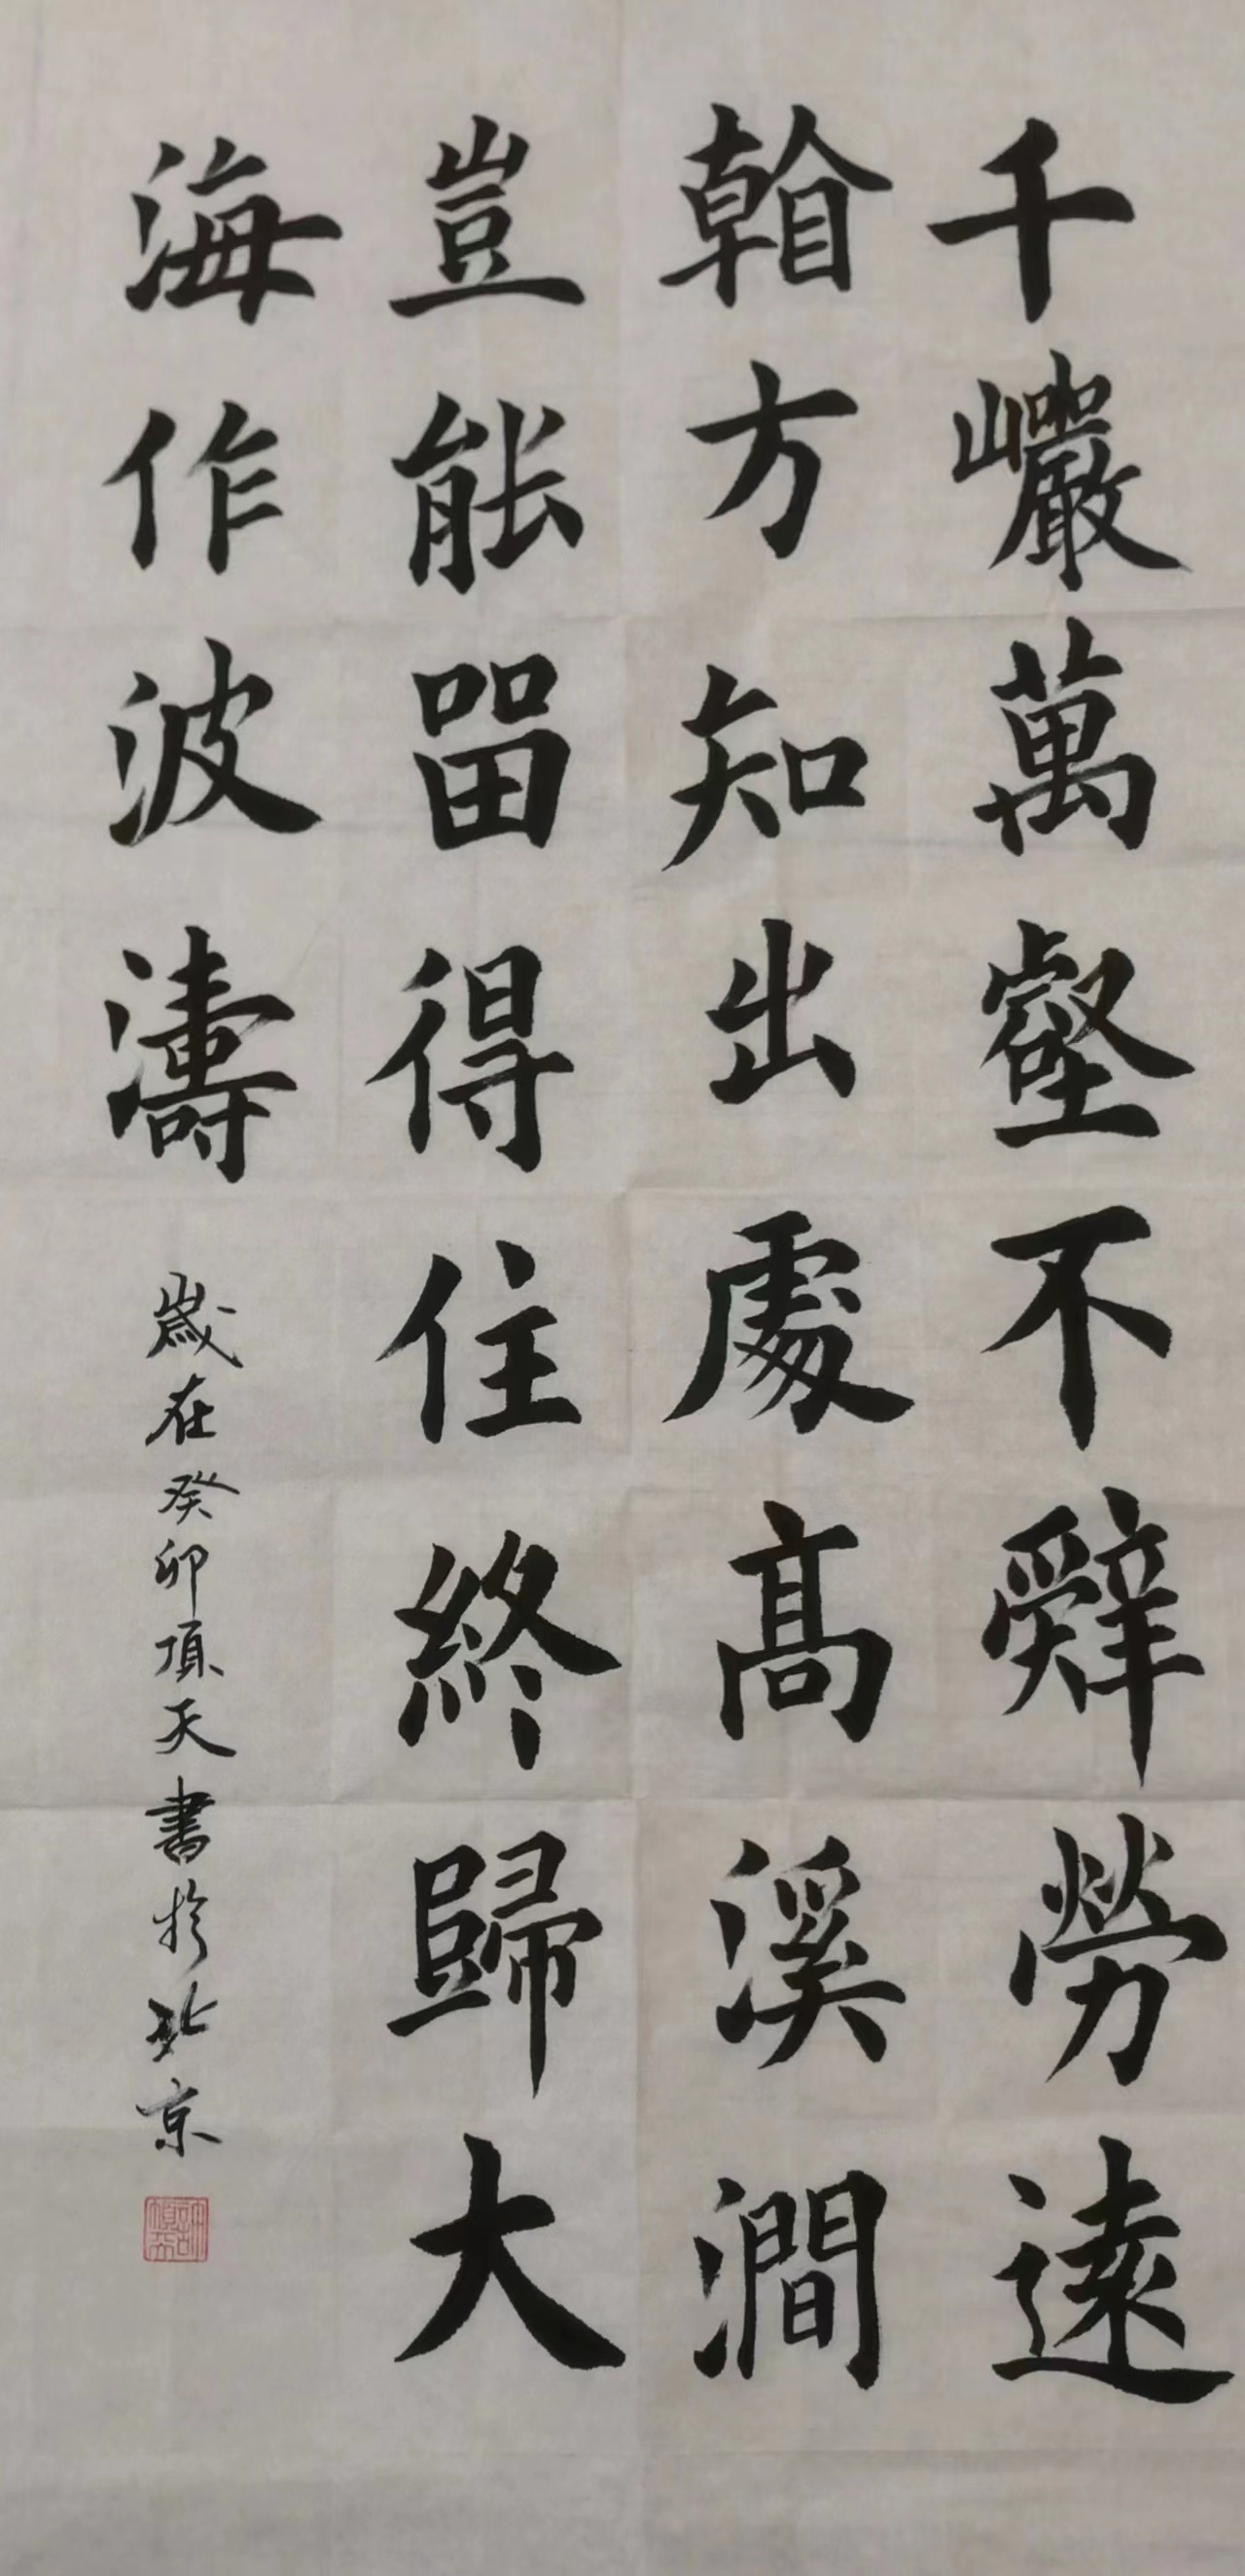 千巗萬壑不辭勞遠
看方知出處高溪澗
豈能留得住終歸大
海作波濤
歲在癸卯頂天書於北京